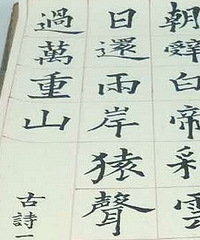 朝辭白帝彩雲
日還兩岸猿聲
過萬重山
古詩